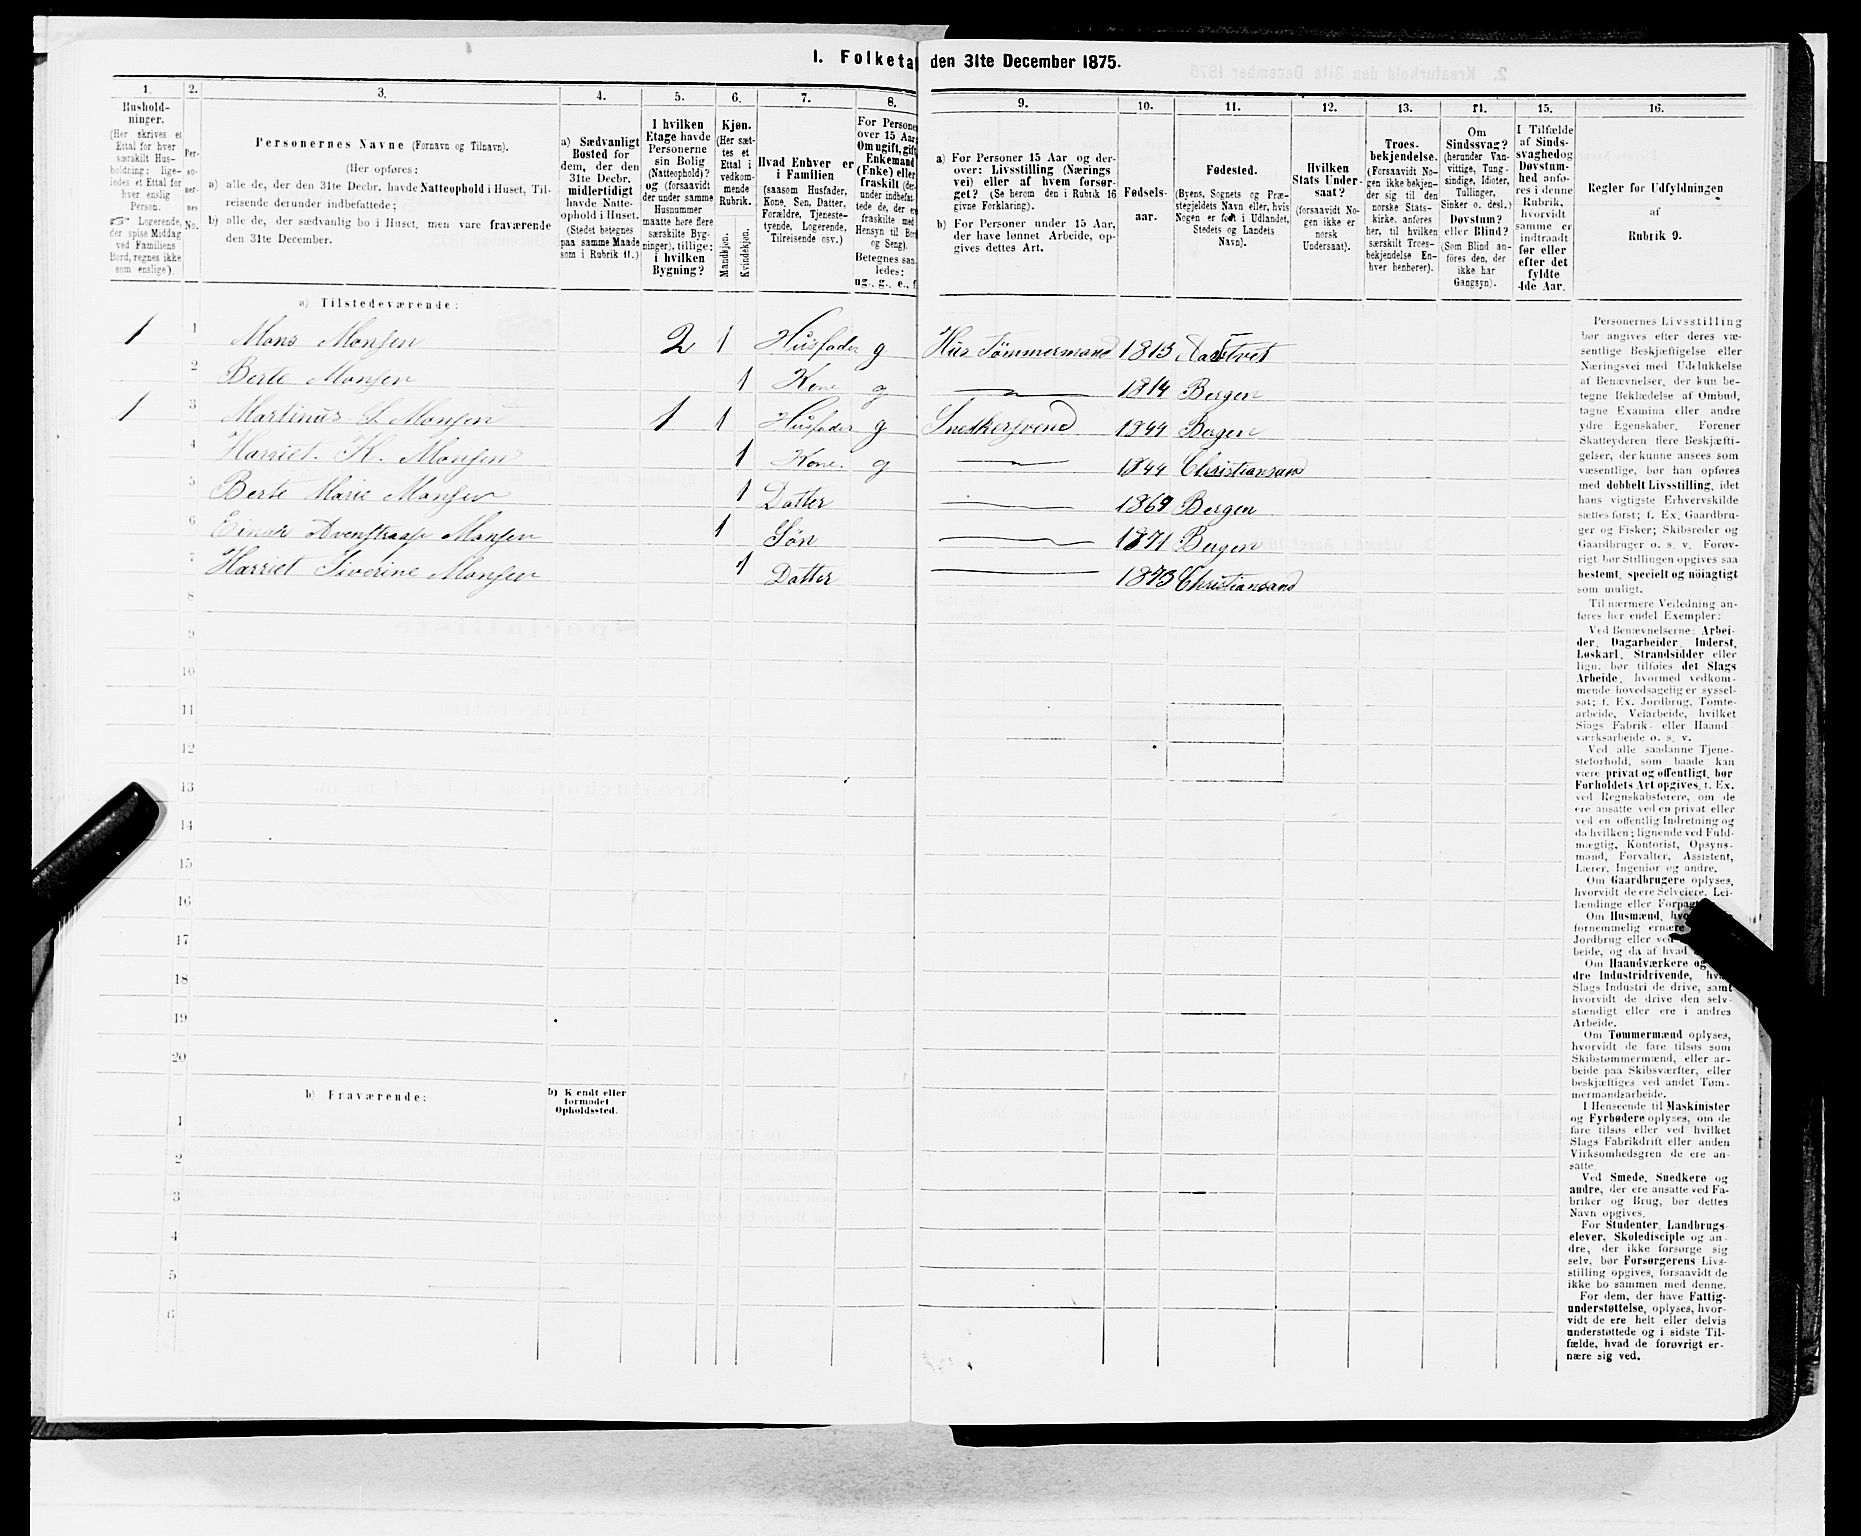 I. Folketa den 31te December 1875.
1. 2. 3. 4. 5. 6. 7. 8. 9. 10. 11. 12. 13. 14. 15. 16.
Hushold-
ninger.
(Her skrives et
Ettal for hver
særskilt Hus-
holdning; lige-
ledes et Ettal for
hver enslig
Person.
☞ Logerende,
der spise Middag
ved Familiens
Bord, regnes ikke
som enslige).
Per-
so-
ner-
nes
No.
Personernes Navne (Fornavn og Tilnavn).
(Her opføres:
a) alle de, der den 31te Decbr. havde Natteophold i Huset, Til-
reisende derunder indbefattede;
b) alle de, der sædvanlig bo i Huset, men vare fraværende
den 31te December.
a) Sædvanligt
Bosted for
dem, der den
31te Decbr.
midlertidigt
havde Natte-
ophold i Huset.
(Stedet betegnes
paa samme Maade
som i Rubrik 11.)
I hvilken
Etage havde
Personerne
sin Bolig
(Natteophold)?
og (forsaavidt
der under samme
Husnummer
maatte høre flere
særskilte Byg-
ninger), tillige:
i hvilken
Bygning?
Kjøn.
(Her sæt-
tes et
Ettal i
vedkom-
mende
Rubrik.
Mandkjøn.
Kvindekjøn.
Hvad Enhver er
i Familien
(saasom Husfader,
Kone, Søn, Datter,
Forældre, Tjeneste-
tyende, Logerende,
Tilreisende osv.)
For Persone
over 15 Aar
Om ugift, gift
Enkemand
(Enke) eller
fraskilt (der-
under indbefat-
tede de, der er
fraskilte med
Hensyn til Bord
og Seng).
Betegnes saa-
ledes:
ug., g., e., f.
a) For Personer 15 Aar og der-
over: Livsstilling (Nærings-
vei) eller af hvem forsør-
get? (Se herom den i Rubrik 16
givne Forklaring).
b) For Personer under 15 Aar,
der have lønnet Arbeide, op-
gives dettes Art.
Fødsels-
aar.
Fødested.
(Byens, Sognets og Præ-
stegjeldets Navn eller, hvis
Nogen er født i Udlandet,
Stedets og Landets
Navn).
Hvilken
Stats Under-
saat?
(forsaavidt No-
gen ikke er
norsk
Undersaat).
Troes-
bekjendelse.
(Forsaavidt No-
gen ikke bekjen-
der sig til den
norske Stats-
kirke, anføres
her, til hvilken
særskilt Troes-
bekjendelse En-
hver henhører).
Om
Sindssvag?
(herunder Van-
vittige, Tung-
sindige, Idioter,
Tullinger,
Sinker o. desl.)
Døvstum?
eller Blind?
(Som Blind an-
føres den, der
ikke har
Gangsyn).
I Tilfælde
af Sinds-
svaghed og
Døvstum-
hed anfø-
res i denne
Rubrik,
hvorvidt
samme er
indtraadt
før eller
efter det
fyldte
4de Aar.
Regler for Udfyldningen
af
Rubrik 9.
a) Tilstedeværende:
1 1 Mons Monsen 2 1 Husfader g Hus Tømmermand 1813
2 Berte Monsen 1 Kone g 1814 Bergen
1 3 Martinus Monsen 1 1 Husfader g Snedkersvend 1844 Bergen
4 Harriet K. Monsen 1 Kone. g 1844 Christiansand
5 Berte Marie Monsen 1 Datter 1869 Bergen
6 Einar Monsen 1 Søn 1871 Bergen
7 Harriet Siverine Monsen 1 Datter 1873 Christiansand
8
9
10
11
12
13
14
15
16
17
18
19
20
b) Fraværende:
b) Kjendt eller
formodet
Opholdssted.
1
2
3
4
5
6
Personernes Livsstilling
bør angives efter deres væ-
sentlige Beskjæftigelse eller
Næringsvei med Udelukkelse
af Benævnelser, der kun be-
tegne Beklædelse af Ombud,
tagne Examina eller andre
ydre Egenskaber. Forener
Skatteyderen flere Beskjæfti-
gelser, der kunne ansees som
væsentlige, bør han opføres
med dobbelt Livsstilling, idet
hans vigtigste Erhvervskilde
sættes først; f. Ex. Gaardbru-
ger og Fisker; Skibsreder og
Gaardbruger o. s. v. Forøv-
rigt bør Stillingen opgives saa
bestemt, specielt og nøiagtigt
som muligt.
Til nærmere Veiledning an-
føres her endel Exempler:
Ved Benævnelserne: Arbei-
der, Dagarbeider, Inderst,
Løskarl, Strandsidder eller
lign. bør tilføies det Slags
Arbeide, hvormed vedkom-
mende hovedsagelig er syssel-
sat; f. Ex. Jordbrug, Tomte-
arbeide, Veiarbeide, hvilket
Slags Fabrik- eller Haand-
værksarbeide o. s. v.
Ved alle saadanne Tjene-
steforhold, som baade kan
være privat og offentligt, bør
Forholdets Art opgives, f. Ex.
ved Regnskabsførere, om de
ere ansatte ved en privat eller
ved en offentlig Indretning og
da hvilken; lignende ved Fuld-
mægtig, Kontorist, Opsyns-
mand, Forvalter, Assistent,
Lærer, Ingeniør og andre.
Om Gaardbrugere oplyses,
hvorvidt de ere Selveiere, Lei-
lændinge eller Forpagt
Om Husmænd, hvo
fornemmelig ernære
Jordbrug eller ved
beide, og da af hvad
Om Haandværkere og
dre Industridrivende, hv
Slags Industri de drive, samt
hvorvidt de drive den selv-
stændigt eller ere i andres
Arbeide.
Om Tømmermænd oplyses,
hvorvidt de fare tilsøs som
Skibstømmermænd, eller ar-
beide paa Skibsværfter, eller
beskjæftiges ved andet Tøm-
mermandsarbeide.
I Henseende til Maskinister
og Fyrbødere oplyses, om de
fare tilsøs eller ved hvilket
Slags Fabrikdrift eller anden
Virksomhedsgren de ere an-
satte.
Ved Smede, Snedkere og
andre, der ere ansatte ved Fa-
briker og Brug, bør dettes
Navn opgives.
For Studenter, Landbrugs-
elever, Skoledisciple og an-
dre, der ikke forsørge sig
selv, bør Forsørgerens Livs-
stilling opgives, forsaavidt de
ikke bo sammen med denne.
For dem, der have Fattig-
understøttelse, oplyses, hvor-
vidt de ere helt eller delvis
understøttede og i sidste Til-
fælde, hvad de forøvrigt er-
nære sig ved.